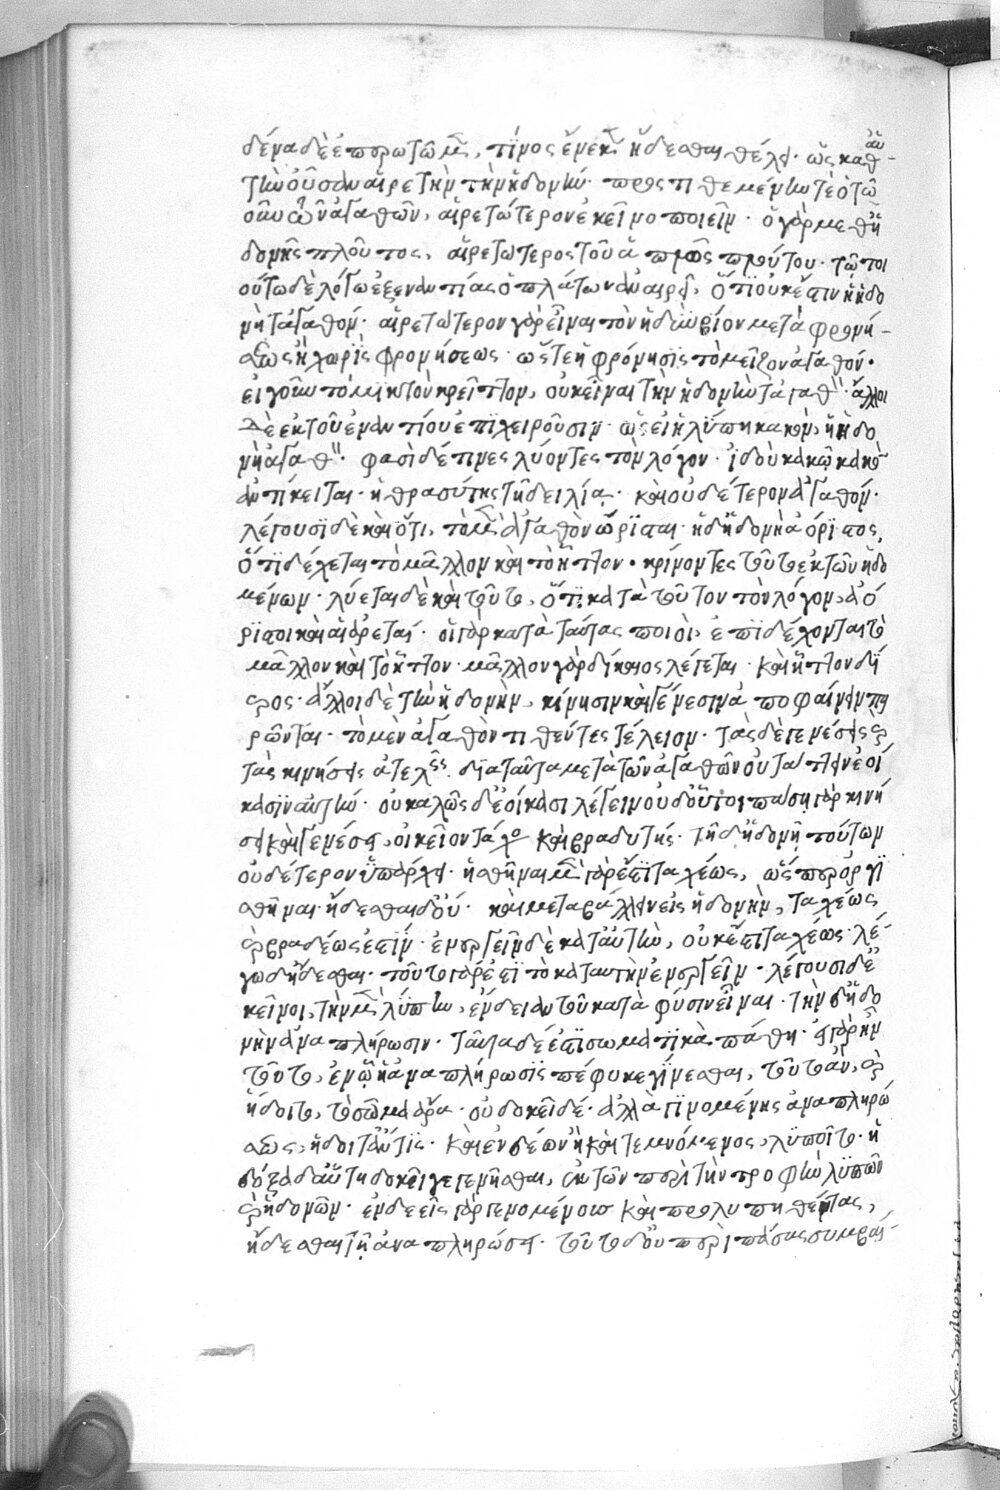 δένα δὲ ἐπερωτῶμεν, τίνος ἕνεκεν ἥδεσθαι θέλει· ὡς καθ' αὑ-
τὴν οὖσαν αἱρετὴν τὴν ἡδονήν· προστιθεμένην τε ὁτῳ
οὖν ὦν ἀγαθῶν, αἱρετώτερον ἐκεῖνο ποιεῖν· ὁ γὰρ μεθ' ἡ
δονῆς πλοῦτος, αἱρετώτερος τοῦ ἁπλῶς πλούτου· τῷ τοι
ούτῳ δὲ λόγῳ ἐξ ἐναντίας ὁ πλάτων ἀναιρεῖ, ὅτι οὐκ ἔστιν ἡ ἡδο
νὴ τἀγαθόν· αἱρετώτερον γὰρ εἶναι τὸν ἡδὺν βίον μετὰ φρονή-
σεως ἢ χωρὶς φρονήσεως· ὥστε ἡ φρόνησις τὸ μεῖζον ἀγαθόν·
εἰ γοῦν τὸ μικτὸν κρεῖττον, οὐκ εἶναι τὴν ἡδονὴν τἀγαθόν· ἄλλοι
δὲ ἐκ τοῦ ἐναντίου ἐπιχειροῦσιν· ὡς εἰ ἡ λύπη κακὸν, ἡ ἡδο
νὴ ἀγαθόν· φασὶ δέ τινες λύοντες τὸν λόγον· ἰδοὺ κακῷ κακὸν
ἀντίκειται· ἡ θρασύτης τῇ δειλίᾳ· καὶ οὐδέτερον ἀγαθόν·
λέγουσι δὲ καὶ ὅτι, τὸ μὲν ἀγαθὸν ὥρισται· ἡ δ' ἡδονὴ ἀόριστος,
ὅτι δέχεται τὸ μᾶλλον καὶ τὸ ἧττον· κρίνοντες τοῦτο ἐκ τῶν ἡδο
μένων· λύεται δὲ καὶ τοῦτο, ὅτι κατὰ τοῦτον τὸν λόγον, ἀό
ριστοι καὶ αἱ ἀρεταί· οἱ γὰρ κατὰ ταύτας ποιοὶ, ἐπιδέχονται τὸ
μᾶλλον καὶ τὸ ἧττον· μᾶλλον γὰρ δίκαιος λέγεται· καὶ ἧττον ἀνδρεῖ
ος· ἄλλοι δὲ τὴν ἡδονὴν, κίνησιν καὶ γένεσιν ἀποφαίνειν πει
ρῶνται· τὸ μὲν ἀγαθόν τι θέντες τέλειον· τὰς δὲ γενέσεις καὶ
τὰς κινήσεις ἀτελεῖς. διὰ ταῦτα μετὰ τῶν ἀγαθῶν οὐ τάττειν ἐοί
κασιν αὐτήν· οὐ καλῶς δὲ ἐοίκασι λέγειν οὐδ' οὗτοι πάσῃ γὰρ κινή
σει καὶ γενέσει, οἰκεῖον τάχος καὶ βραδυτής· τῇ δ' ἡδονῇ τούτων
οὐδέτερον ὑπάρχει· ἡσθῆναι μὲν γὰρ ἔστι ταχέως, ὥσπερ ὀργι
σθῆναι· ἥδεσθαι δ' οὔ· καὶ μεταβάλλειν εἰς ἡδονὴν, ταχέως
καὶ βραδέως ἐστίν· ἐνεργεῖν δὲ κατ' αὐτὴν, οὐκ ἔστι ταχέως· λέ-
γω δ' ἥδεσθαι· τοῦτο γάρ ἐστι τὸ κατ' αὐτὴν ἐνεργεῖν· λέγουσι δὲ ἐ
κεῖνοι, τὴν μὲν λύπην, ἔνδειαν τοῦ κατὰ φύσιν εἶναι· τὴν δ' ἡδο
νὴν ἀναπλήρωσιν· ταῦτα δέ ἐστι σωματικὰ πάθη· εἰ γὰρ ἦν
τοῦτο, ἐν ᾧ ἡ ἀναπλήρωσις πέφυκε γίνεσθαι, τοῦτ' ἂν, καὶ
ἥδοιτο, τὸ σῶμα ἄρα· οὐ δοκεῖ δέ· ἀλλὰ γινομένης ἀναπληρώ
σεως, ἥδοιτ' ἄν τις· καὶ ἐνδέων ἢ καὶ τεμνόμενος, λυποῖτο· ἡ
δόξα δ' αὕτη δοκεῖ γεγενῆσθαι, ἐκ τῶν περὶ τὴν τροφὴν λυπῶν
καὶ ἡδονῶν· ἐνδεεῖς γὰρ γενομένους καὶ προλυπηθέντας,
ἥδεσθαι τῇ ἀναπληρώσει· τοῦτο δ' οὐ περὶ πάσας συμβαί-